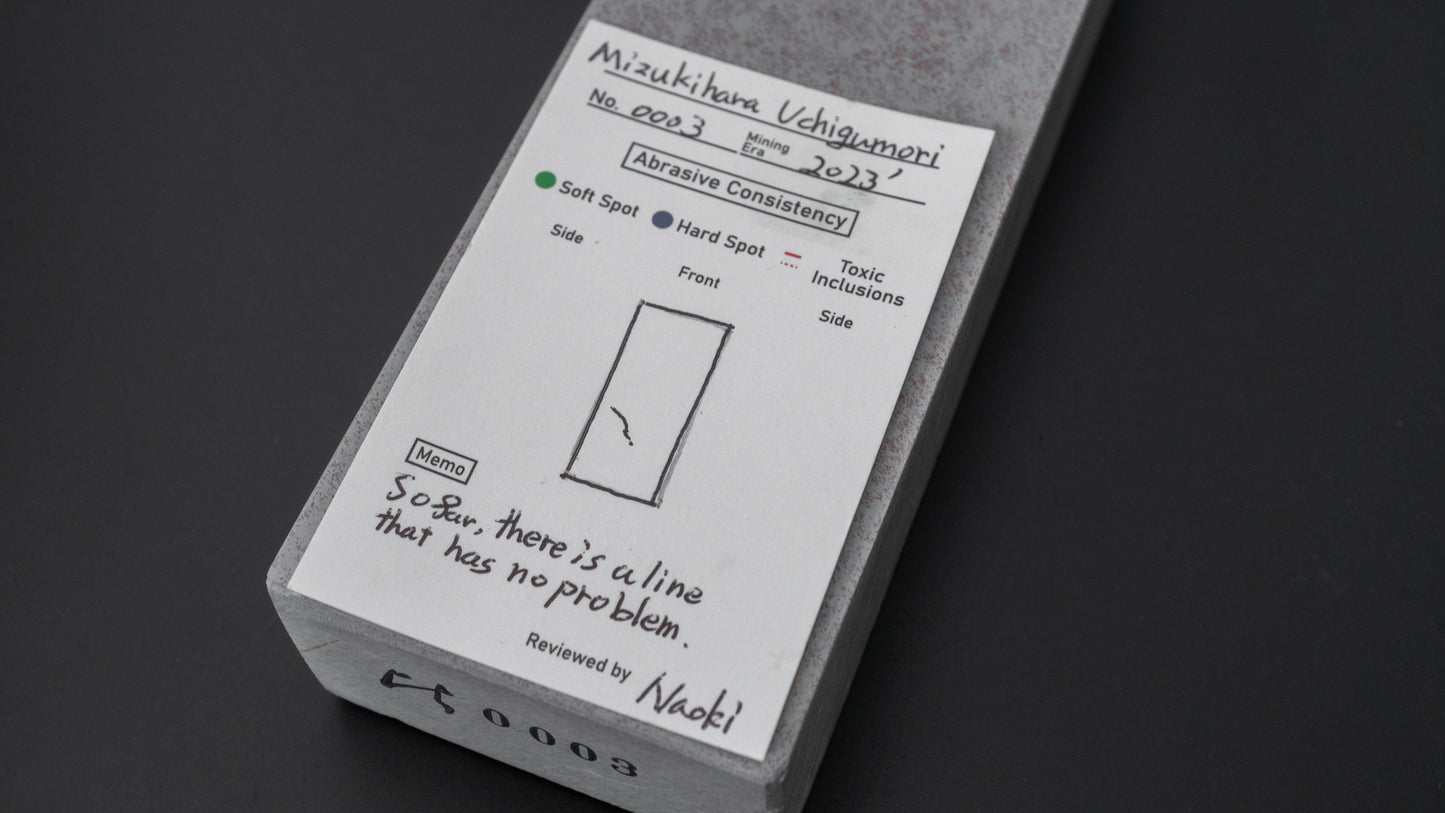 Mizukihara Uchigumori
No. 0003 Mining Era 2023'
Abrasive Consistency
Soft Spot Hard Spot Toxic Inclusions
Side Front Side
Memo
So far, there is a line
that has no problem.
Reviewed by Naoki
0003